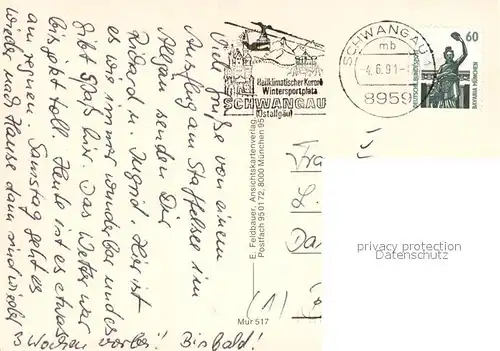 Viele Grüße von einem
Ausflug am Staffelsee im
Allgäu senden Dir
Richard u. Ingrid. Hier ist
es wie immer wunderbar und es
gibt Spaß hier. Das Wetter war
bis jetzt toll. Heute ist es etwas
am regnen. Samstag geht es
wieder nach Hause dann sind wieder
3 Wochen vorbei! Bis bald!
Heilklimatischer Kurort
Wintersportplatz
SCHWANGAU
(Ostallgäu)
SCHWANGAU 1
mb
-4.6.91-
8959
60
DEUTSCHE BUNDESPOST
BAVARIA MÜNCHEN
E. Feldbauer, Ansichtskartenverlag
Postfach 950172, 8000 München 95
Mur 517
(1)
privacy protection
Datenschutz